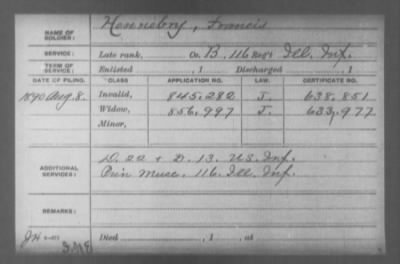 NAME OF SOLDIER: Hennebry, Francis
SERVICE: Late rank, Co. B, 116 Reg't Ill. Inf.
TERM OF SERVICE: Enlisted , 1 Discharged , 1
DATE OF FILING. CLASS APPLICATION NO. LAW. CERTIFICATE NO.
1890 Aug. 8. Invalid, 845.282 J. 638.851
Widow, 856.997 J. 633.977
Minor,
ADDITIONAL SERVICES: D. 22 & D. 13. U.S. Inf.
Prin Musc. 116. Ill. Inf.
REMARKS:
Died , 1 , at